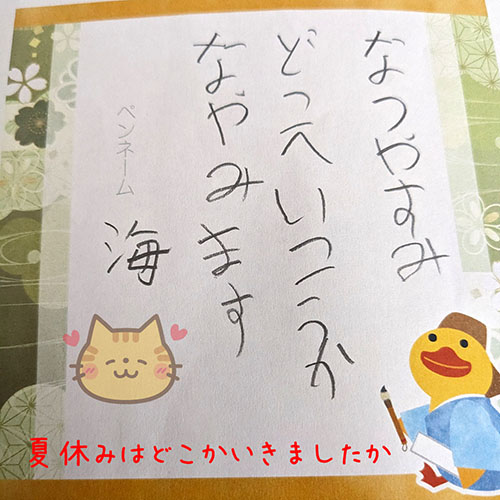 なつやすみ
どこへいっこうか
なやみます
ペンネーム
海
夏休みはどこかいきましたか